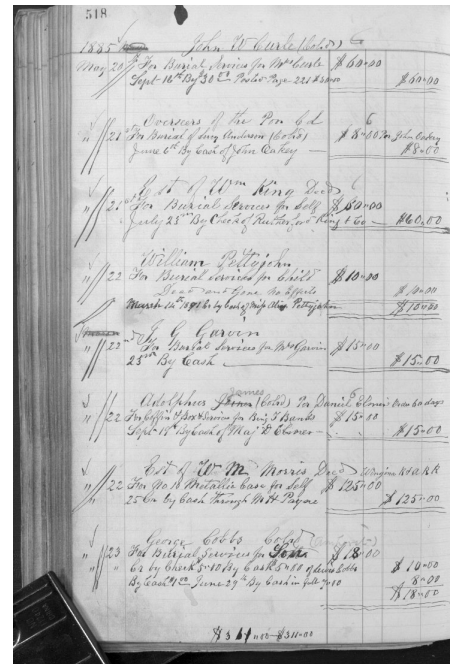 518
1885 John W Curle (Cold) 6
May 20 For Burial Services for Mrs Curle $60=00
Sept 16th By Posted Page 221 $60=00
Overseers of the Poor 6
" 21 For Burial of Lucy Anderson (Cold) $8=00 Per John Oakey
June 6th By Cash of John Oakey $8=00
Est of Wm King Decd 6
" 21 For Burial Services for Self $60=00
July 28th By Check of Rutherford King & Co $60=00
William Pettyjohn
" 22 For Burial services for Child $10=00
Dead and Gone No Effects $10=00
March by Cash of Pettyjohn $10=00
G Garvin
" 23 For Burial Services for Mrs Garvin $15=00
23rd By Cash $15=00
Adolpheus James (Cold) Per Daniel 60 days
" 22 For Coffin & Box & Services for Banks $15=00
Sept 19th By Cash of Maj D $15=00
Est of W M Morris Decd
" 22 For No Metallic Case for Self $125=00
25 Cr by Cash through M H Payne $125=00
George Cobbs Cold
" 23 For Burial Services for Son $18=00
Cr by Check 5=00 By Cash 5=00 $10=00
By Cash June 29th By Cash in full 8=00
$18=00
$311=00